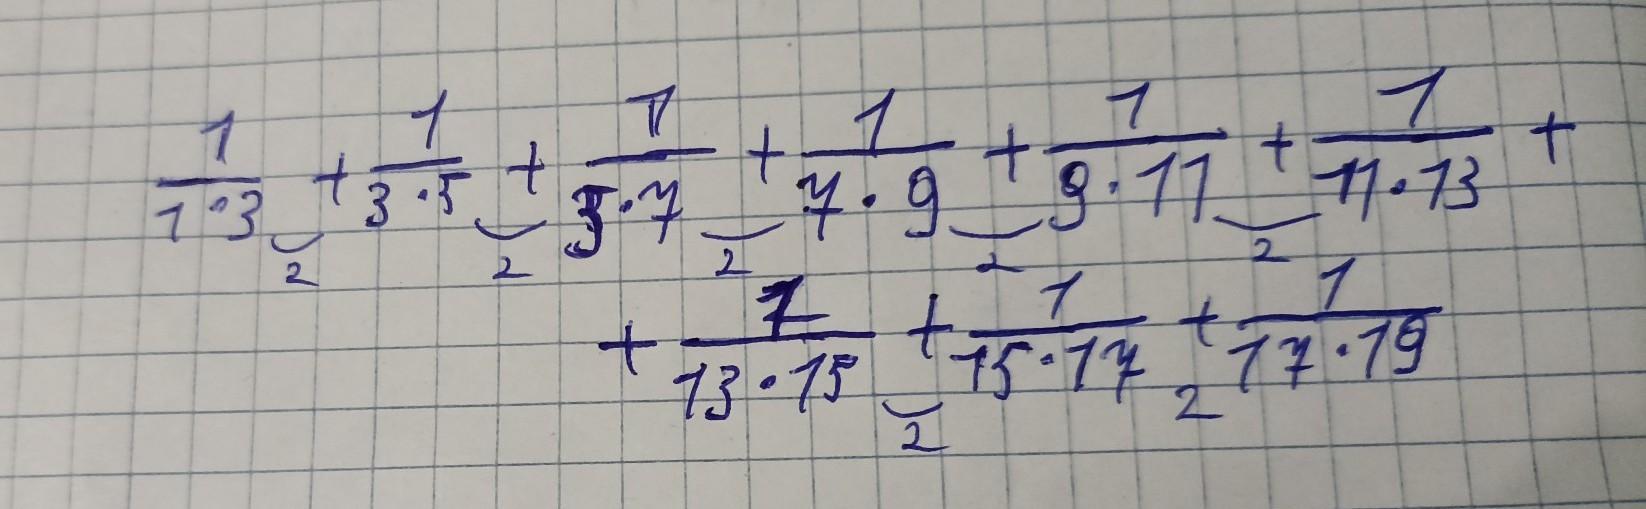 1/(1·3) + 1/(3·5) + 1/(5·7) + 1/(7·9) + 1/(9·11) + 1/(11·13) +
2 2 2 2 2
+ 1/(13·15) + 1/(15·17) + 1/(17·19)
2 2